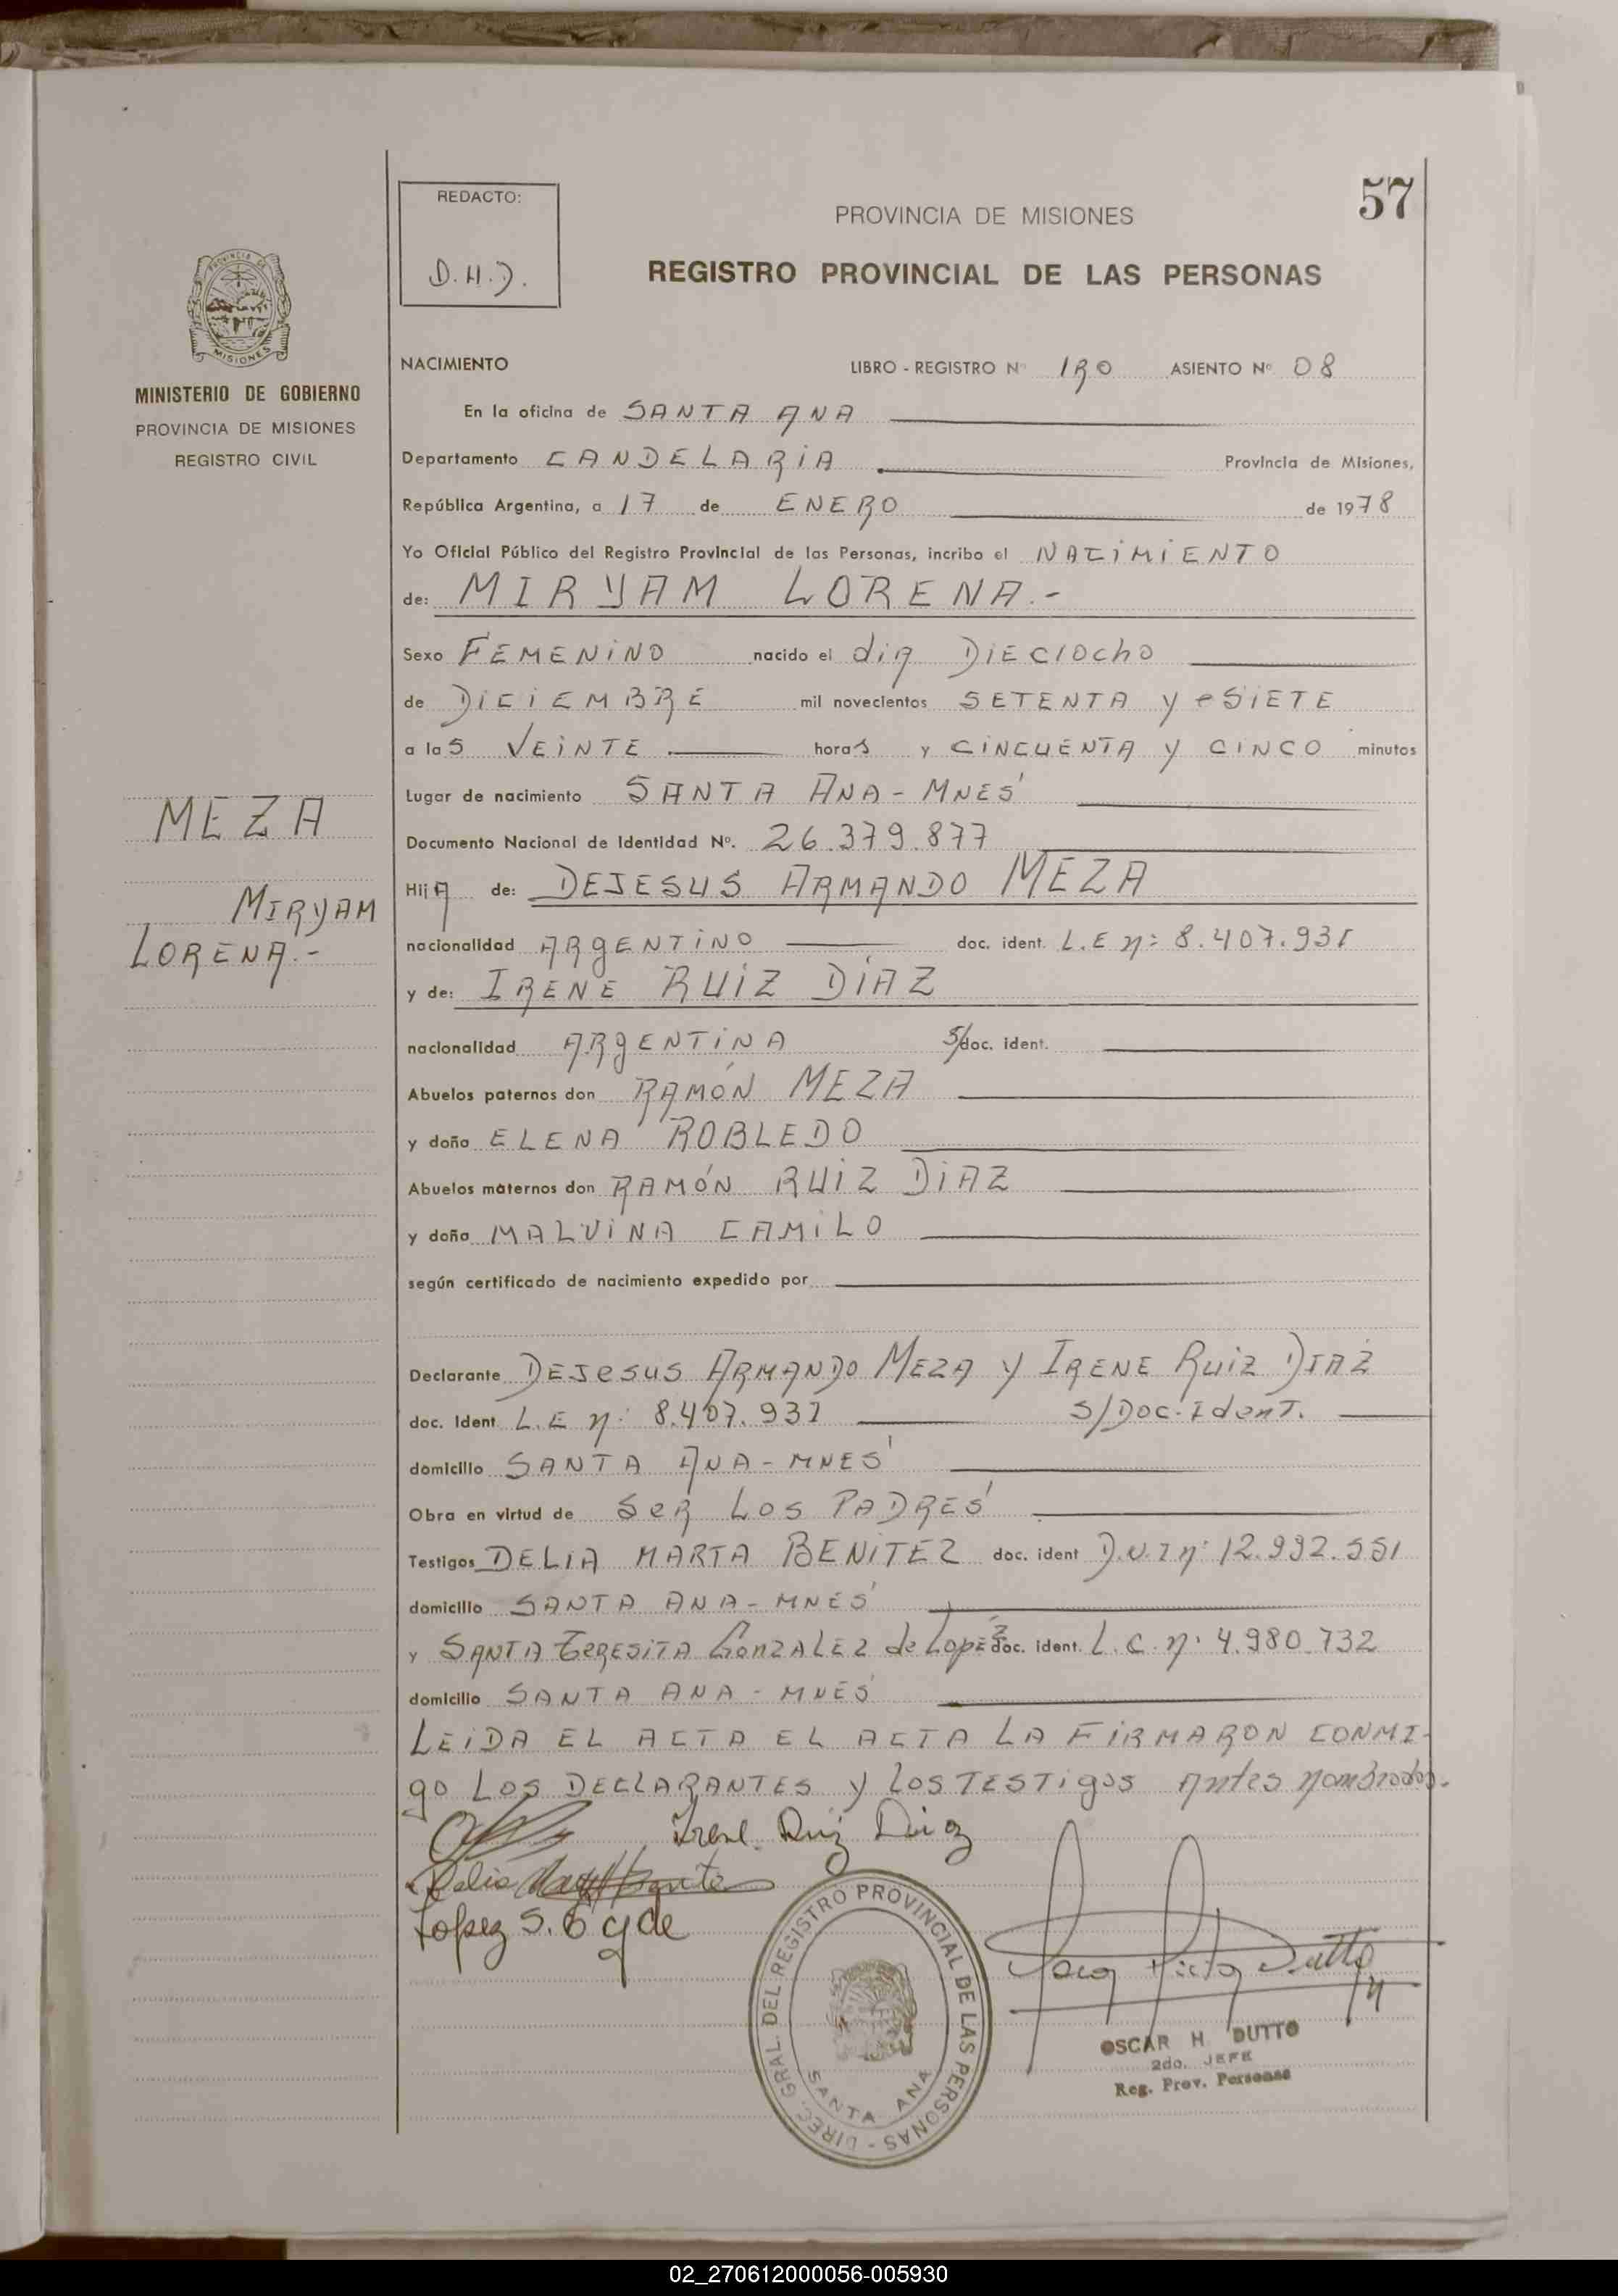 57
REDACTO:
D.H.D.
PROVINCIA DE MISIONES
REGISTRO PROVINCIAL DE LAS PERSONAS
PROVINCIA DE
MISIONES
MINISTERIO DE GOBIERNO
PROVINCIA DE MISIONES
REGISTRO CIVIL
NACIMIENTO LIBRO - REGISTRO Nº 1RO ASIENTO Nº 08
En la oficina de SANTA ANA
Departamento CANDELARIA Provincia de Misiones,
República Argentina, a 17 de ENERO de 1978
Yo Oficial Público del Registro Provincial de las Personas, incribo el NACIMIENTO
de: MIRYAM LORENA.-
Sexo FEMENINO nacido el dia DIECIOCHO
de DICIEMBRE mil novecientos SETENTA y SIETE
a las VEINTE horas y CINCUENTA y CINCO minutos
Lugar de nacimiento SANTA ANA - MNES
Documento Nacional de Identidad Nº. 26.379.877
MEZA
MIRYAM
LORENA.-
Hija de: DEJESUS ARMANDO MEZA
nacionalidad ARGENTINO doc. ident. L.E nº: 8.407.931
y de: IRENE RUIZ DIAZ
nacionalidad ARGENTINA S/doc. ident.
Abuelos paternos don RAMÓN MEZA
y doña ELENA ROBLEDO
Abuelos maternos don RAMÓN RUIZ DIAZ
y doña MALVINA CAMILO
según certificado de nacimiento expedido por
Declarante DEJESUS ARMANDO MEZA y IRENE RUIZ DIAZ
doc. Ident L.E nº: 8.407.931 S/DOC. IdenT.
domicilio SANTA ANA - MNES
Obra en virtud de SER LOS PADRES
Testigos DELIA MARTA BENITEZ doc. ident D.N.I nº: 12.992.551
domicilio SANTA ANA - MNES
y SANTA TERESITA GONZALEZ de LOPEZ doc. ident. L.C. nº 4.980.732
domicilio SANTA ANA - MNES
LEIDA EL ACTA EL ACTA LA FIRMARON CONMI-
go LOS DECLARANTES y LOS TESTIGOS Antes nombrados.
Irene Ruiz Diaz
Delia
Lopez S. G de
DIREC. GRAL. DEL REGISTRO PROVINCIAL DE LAS PERSONAS -
SANTA ANA
Dutto
OSCAR H. DUTTO
2do. JEFE
Reg. Prov. Personas
02_270612000056-005930